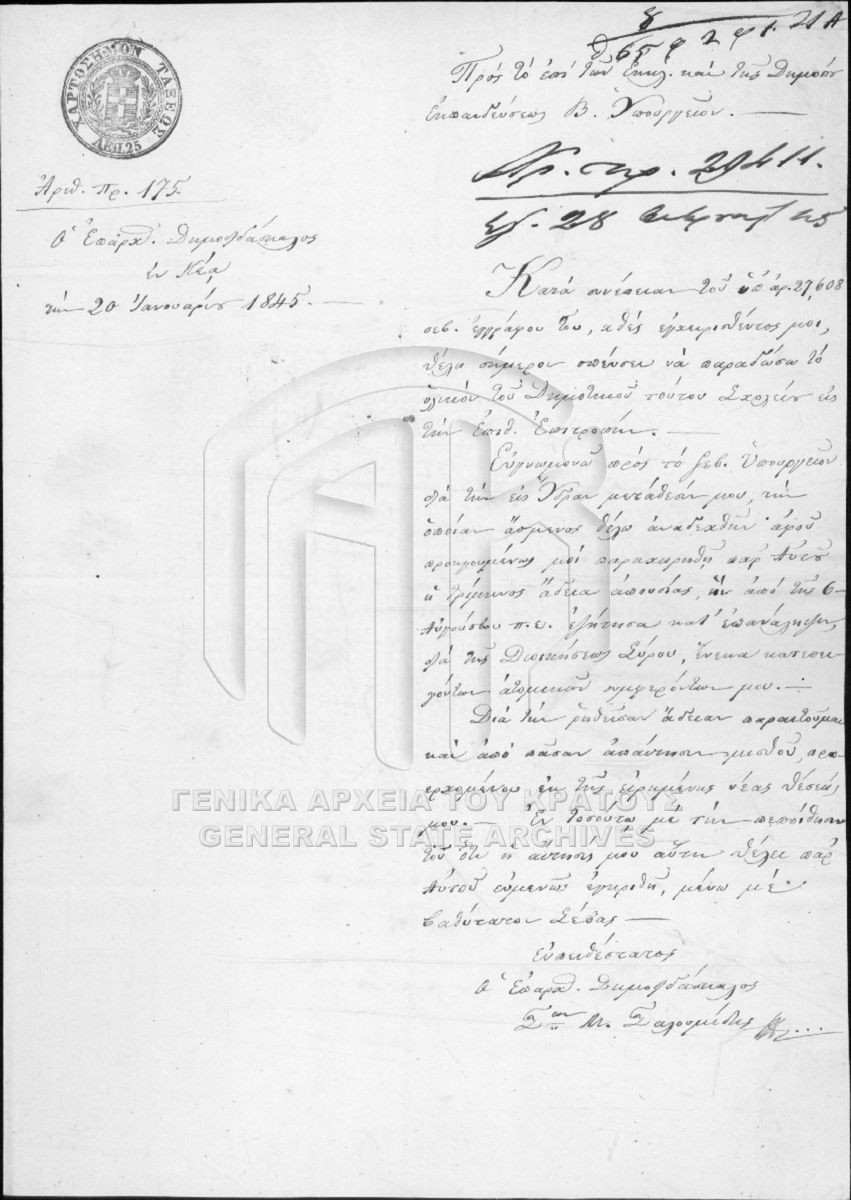 ΧΑΡΤΟΣΗΜΟΝ ΤΑΞΕΩΣ
ΛΕΠ. 25
Πρός τό ἐπί τῶν Ἐκκλ. καί τῆς Δημοσίου
Ἐκπαιδεύσεως Β. Ὑπουργεῖον. —
Ἀριθ. πρ. 175.
Ἀρ. πρ. 29411.
Ὁ Ἐπαρχ. Δημοδιδάσκαλος
ἐν Κέᾳ
τήν 20 Ἰανουαρίου 1845. —
Κατά συνέπειαν τοῦ ὑπ' ἀρ. 27,608
σεβ. ἐγγράφου του, χθές ἐγχειρισθέντος μοι,
θέλω σήμερον σπεύσει νά παραδώσω τό
ὑλικόν τοῦ Δημοτικοῦ τούτου Σχολείου εἰς
τήν Ἐπιθ. Ἐπιτροπήν. —
Εὐγνωμονῶ πρός τό Σεβ. Ὑπουργεῖον
διά τήν εἰς Ὕδραν μετάθεσίν μου, τήν
ὁποίαν ἄσμενος θέλω ἀναδεχθῆν ἀφοῦ
προηγουμένως μοί παραχωρηθῇ παρ' Αὐτοῦ
ἡ τρίμηνος ἄδεια ἀπουσίας, ἣν ἀπό τῆς 6
Αὐγούστου π.ε. ἐζήτησα κατ' ἐπανάληψιν,
διά τῆς Διοικήσεως Σύρου, ἕνεκα κατεπει-
γόντων ἀτομικῶν συμφερόντων μου. —
Διά τήν ῥηθεῖσαν ἄδειαν παραιτοῦμαι
καί ἀπό πᾶσαν ἀπαίτησιν μισθοῦ, προ-
ερχομένου ἐκ τῆς εἰρημένης νέας θέσεώς
μου. — Ἐν τοσούτῳ μέ τήν πεποίθησιν
τοῦ ὅτι ἡ αἴτησίς μου αὕτη θέλει παρ'
Αὐτοῦ εὐμενῶς ἐγκριθῆ, μένω μέ
βαθύτατον Σέβας —
Εὐπειθέστατος
Ὁ Ἐπαρχ. Δημοδιδάσκαλος
ΓΕΝΙΚΑ ΑΡΧΕΙΑ ΤΟΥ ΚΡΑΤΟΥΣ
GENERAL STATE ARCHIVES